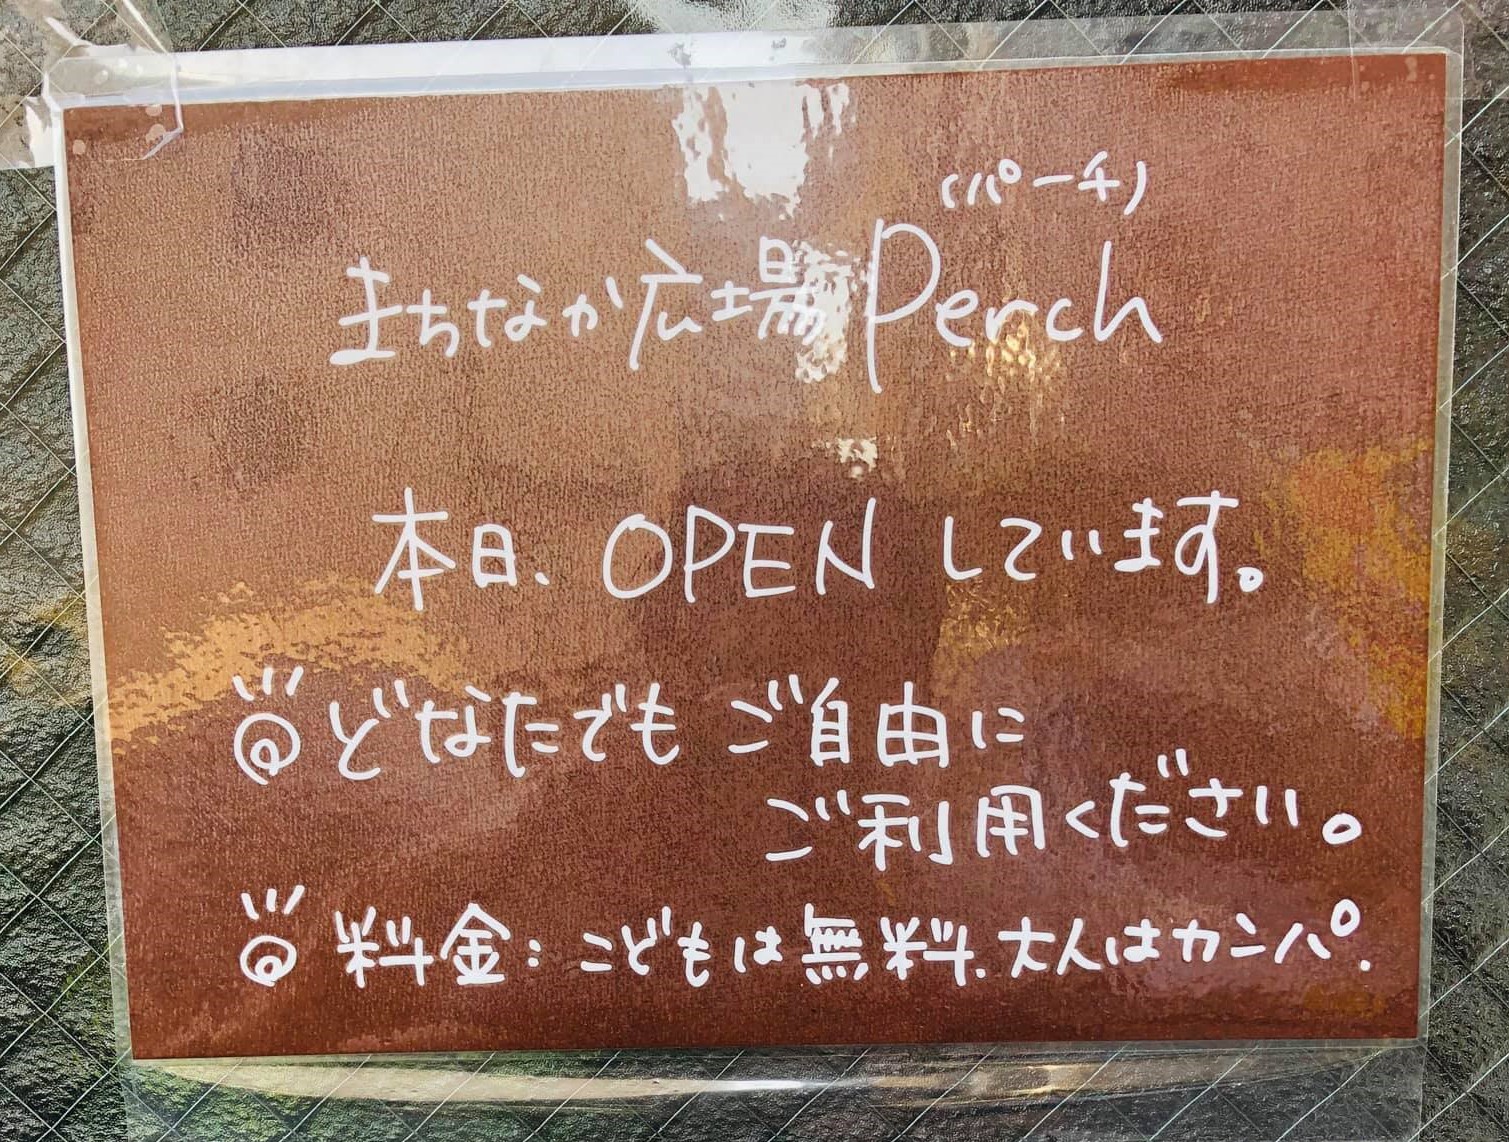 (パーチ)
まちなか広場 Perch
本日、OPENしています。
どなたでも ご自由に
ご利用ください。
料金：こどもは無料、大人はカンパ。